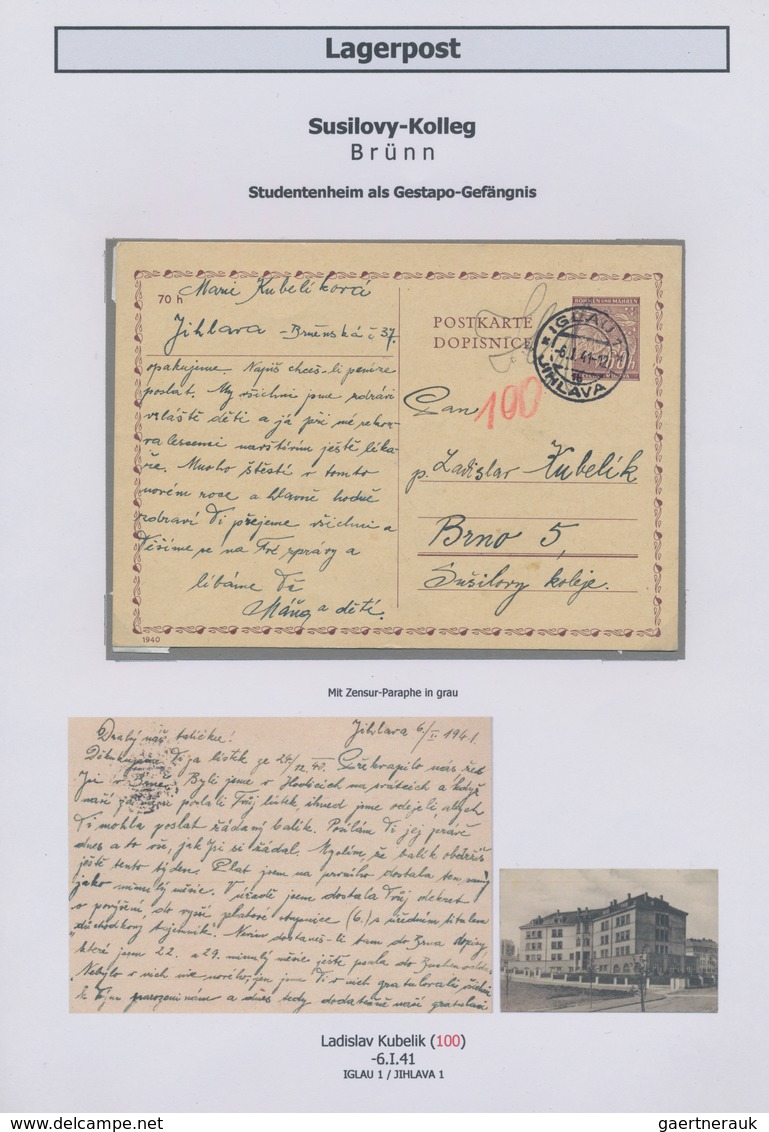 Lagerpost
Susilovy-Kolleg
Brünn
Studentenheim als Gestapo-Gefängnis
70 h
Marie Kubelíková
Jihlava - Brněnská č. 37.
opakujeme. Napiš chceš-li peníze
poslat. My všichni jsme zdrávi
zvláště děti a já při mé rekon-
valescenci navštívím ještě léka-
ře. Mnoho štěstí v tomto
novém roce a hlavně hodně
zdraví Ti přejeme všichni a
Těšíme se na Tvé zprávy a
líbáme Tě
Máňa a děti.
1940
BÖHMEN UND MÄHREN
POSTKARTE
DOPISNICE
IGLAU 1
-6.I.41-12
JIHLAVA 1
Pan
100
p. Ladislav Kubelík
Brno 5,
Sušilovy koleje.
Mit Zensur-Paraphe in grau
Jihlava 6/I 1941.
Drahý náš tatíčku!
Děkujeme Ti za lístek ze 26/12 40. Překvapilo nás, že
Jsi v Brně. Byli jsme v na svátcích a když
naši poslali Tvůj lístek, ihned jsme odejeli, abych
Ti mohla poslat žádaný balík. Posílám Ti jej právě
dnes a to vše, jak jsi si žádal. Myslím, že balík obdržíš
ještě tento týden. Plat jsem na prvního dostala ten samý
jako minulý měsíc. V úřadě jsem dostala Tvůj dekret
o povýšení, do vyšší platové stupnice (6.) s úředním titulem
"důchodkový tajemník". Nevím dostaneš-li tam do Brna dopisy,
které jsem 22. a 29. minulý měsíc ještě psala do
Nebylo v nich nic nového, jen jsme Ti v nich gratulovali
k Tvým narozeninám a dnes tedy dodatečně naši gratulaci
Ladislav Kubelik (100)
-6.I.41
IGLAU 1 / JIHLAVA 1
delcampe.net
gaertnerauk